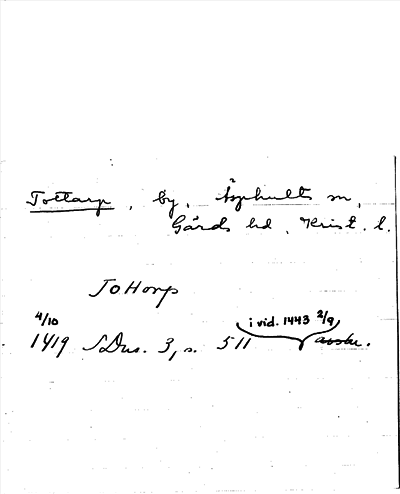 Tottarp, by, Äsphults sn,
Gärds hd, Krist. l.
Tottorp
4/10
i vid. 1443 2/9
1419 SDns. 3, s. 511 avskr.